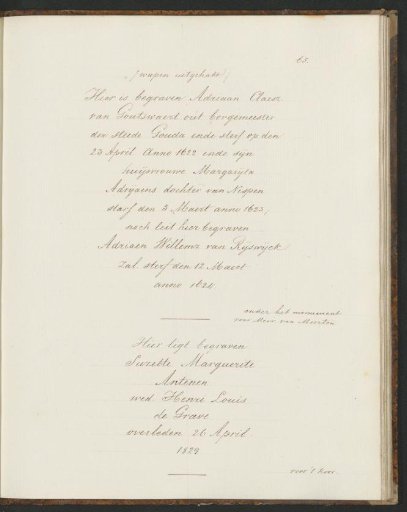 65.
(wapen uitgehakt)
Hier is begraven Adriaan Claesz
van Goutswaert out borgemeister
der stede Gouda ende sterf op den
23 April Anno 1622 ende syn
huijsvrouwe Margarijta
Adryaens dochter van Nispen
starf den 3 Maert anno 1623,
noch leit hier begraven
Adriaen Willemz van Ryswyck
zal. sterf den 12 Maert
anno 1624
onder het monument
voor Mevr. van
Hier ligt begraven
Marguerite
Antenen
wed. Henri Louis
de Grave
overleden 26 April
1829
voor 't koor.